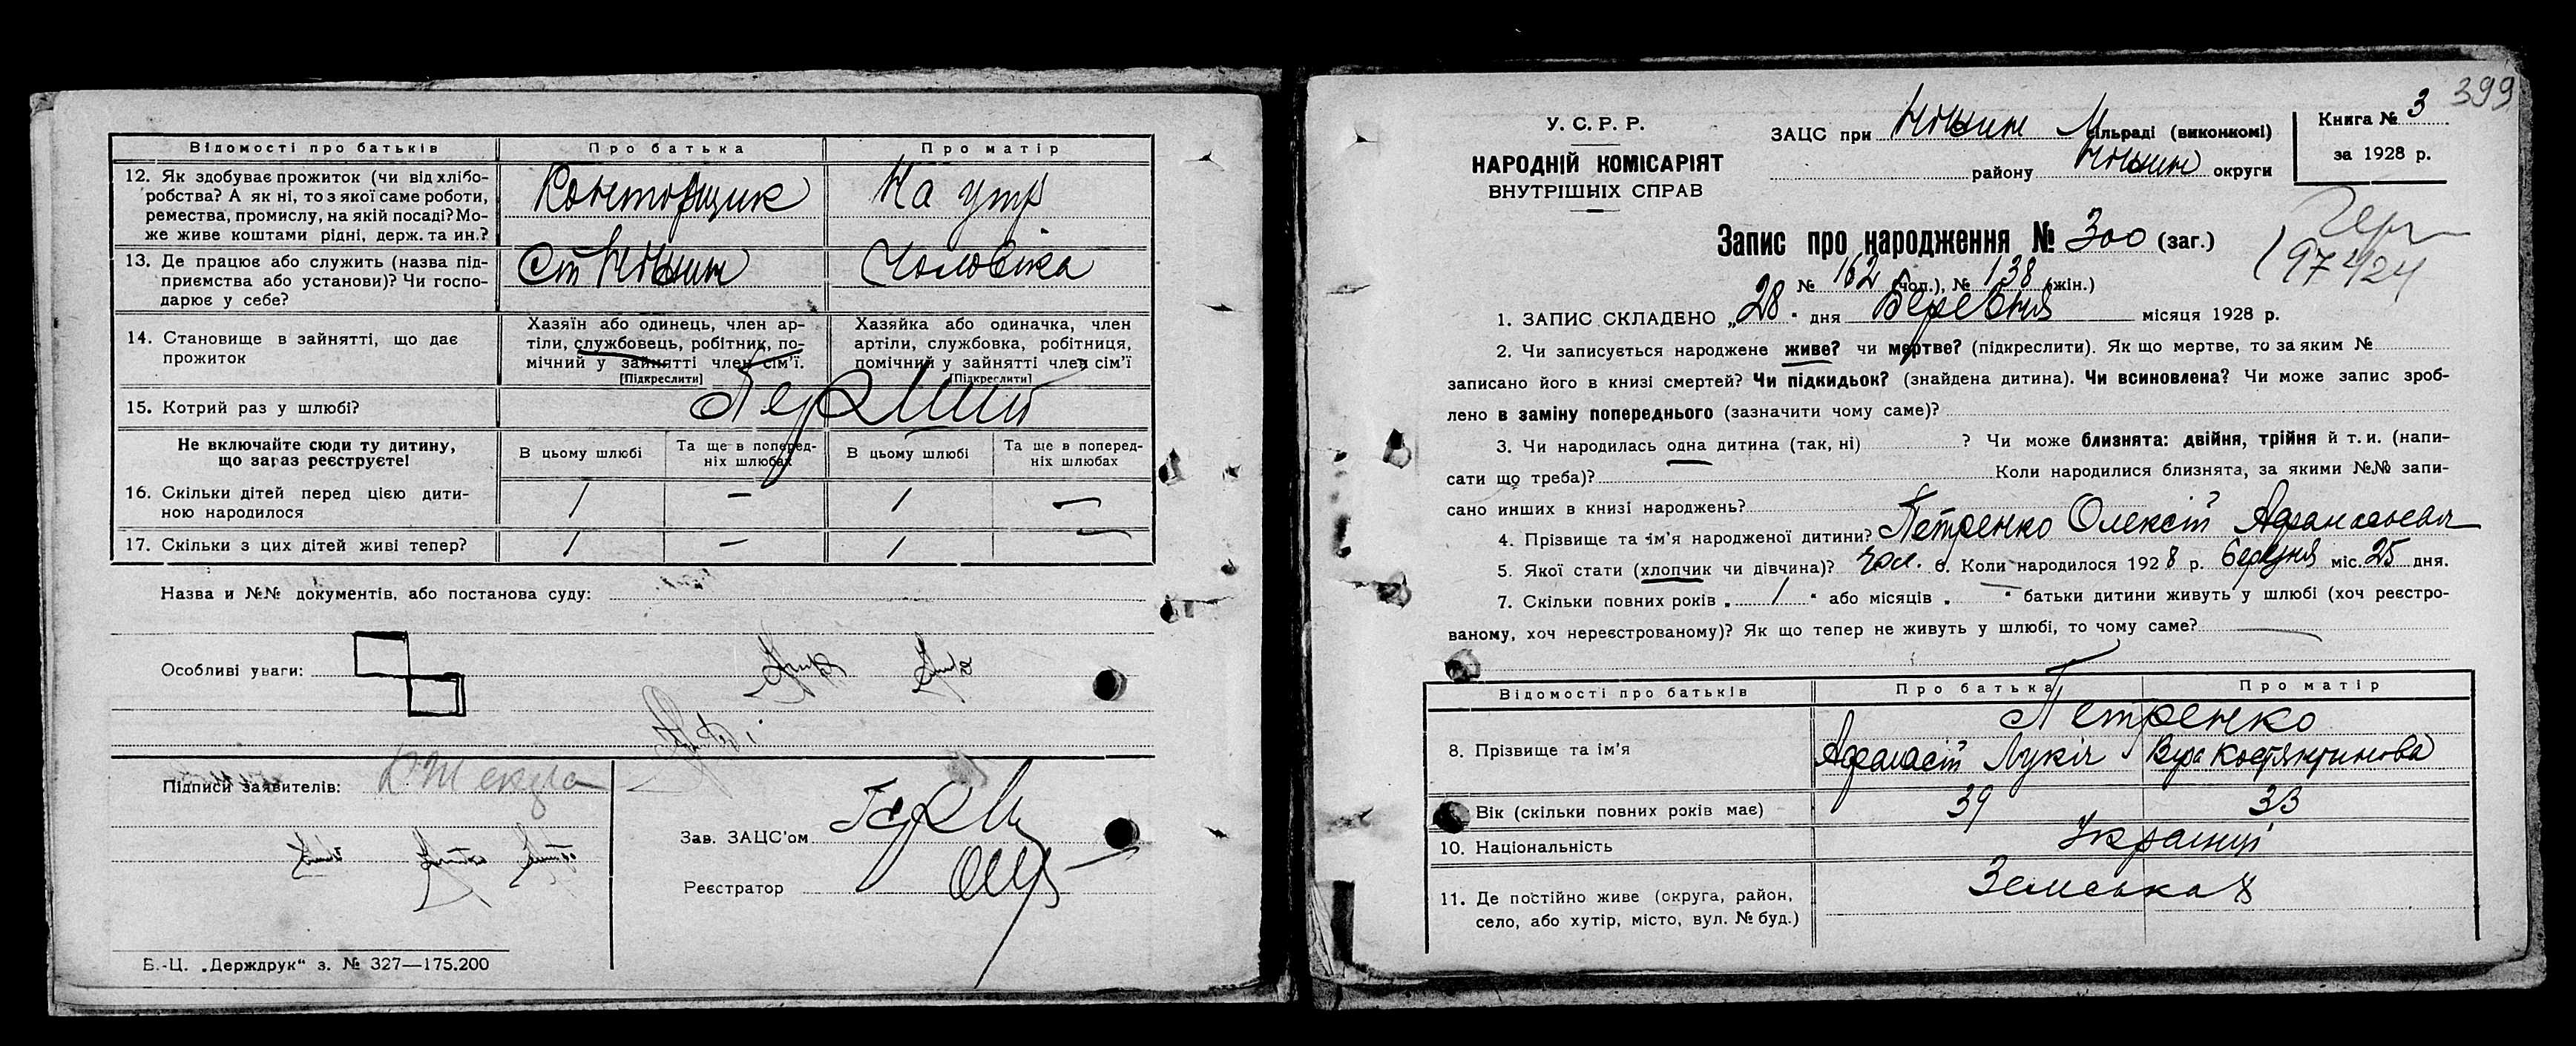 Відомості про батьків Про батька Про матір
12. Як здобуває прожиток (чи від хлібо-
робства? А як ні, то з якої саме роботи,
ремества, промислу, на якій посаді? Мо-
же живе коштами рідні, держ. та ин.?
Конторщик На утр
13. Де працює або служить (назва під-
приємства або установи)? Чи госпо-
дарює у себе?
Ст Ніжин Чоловіка
14. Становище в зайнятті, що дає
прожиток
Хазяїн або одинець, член ар-
тіли, службовець, робітник, по-
мічний у зайнятті член сім'ї.
[Підкреслити]
Хазяйка або одиначка, член
артіли, службовка, робітниця,
помічний у зайнятті член сім'ї
[Підкреслити]
15. Котрий раз у шлюбі? Перший
Не включайте сюди ту дитину,
що зараз реєструєте!
В цьому шлюбі
Та ще в поперед-
ніх шлюбах
В цьому шлюбі
Та ще в поперед-
ніх шлюбах
16. Скільки дітей перед цією дити-
ною народилося
1 — 1 —
17. Скільки з цих дітей живі тепер? 1 — 1 —
Назва и №№ документів, або постанова суду:
Особливі уваги:
Підписи заявителів:
Зав. ЗАЦС'ом
Реєстратор
Б.-Ц. „Держдрук“ з. № 327—175.200
399
У. С. Р. Р.
НАРОДНІЙ КОМІСАРІЯТ
ВНУТРІШНІХ СПРАВ
ЗАЦС при Ніжин М сільраді (виконкомі)
району Ніжин округи
Книга № 3
за 1928 р.
Запис про народження № 300 (заг.)
№ 162 (чол.), № 138 (жін.)
1. ЗАПИС СКЛАДЕНО „28“ дня Березня місяця 1928 р.
2. Чи записується народжене живе? чи мертве? (підкреслити). Як що мертве, то за яким №
записано його в книзі смертей? Чи підкидьок? (знайдена дитина). Чи всиновлена? Чи може запис зроб-
лено в заміну попереднього (зазначити чому саме)?
3. Чи народилась одна дитина (так, ні) ? Чи може близнята: двійня, трійня й т. и. (напи-
сати що треба)? Коли народилися близнята, за якими №№ запи-
сано инших в книзі народжень?
4. Прізвище та ім'я народженої дитини? Петренко Олексій Афанасьевич
5. Якої стати (хлопчик чи дівчина)? чол. 6. Коли народилося 1928 р. березня міс. 25 дня.
7. Скільки повних років „ 1 “ або місяців „ — “ батьки дитини живуть у шлюбі (хоч реєстро-
ваному, хоч нереєстрованому)? Як що тепер не живуть у шлюбі, то чому саме?
Відомості про батьків Про батька Про матір
Петренко
8. Прізвище та ім'я Афанасій Лукіч Віра Костянтинова
9. Вік (скільки повних років має) 39 33
10. Національність Украинці
11. Де постійно живе (округа, район,
село, або хутір, місто, вул. № буд.)
Земська 8